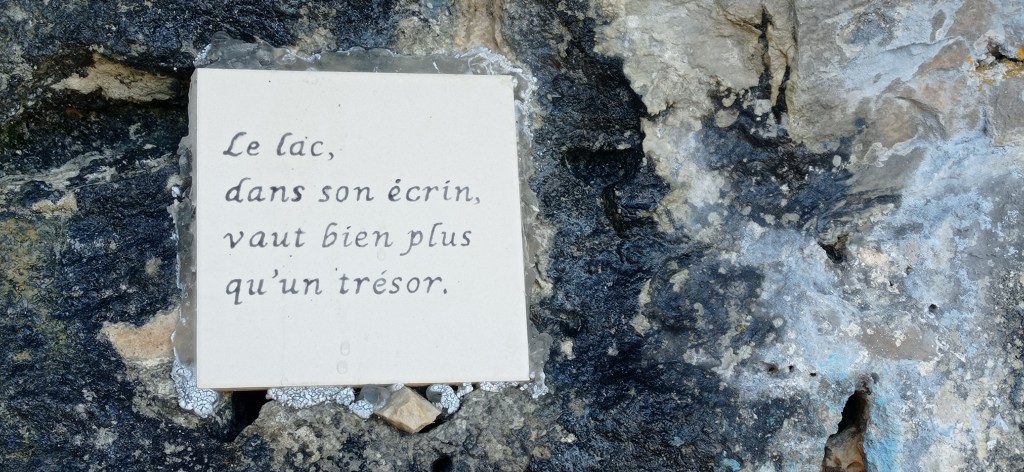 Le lac,
dans son écrin,
vaut bien plus
qu'un trésor.